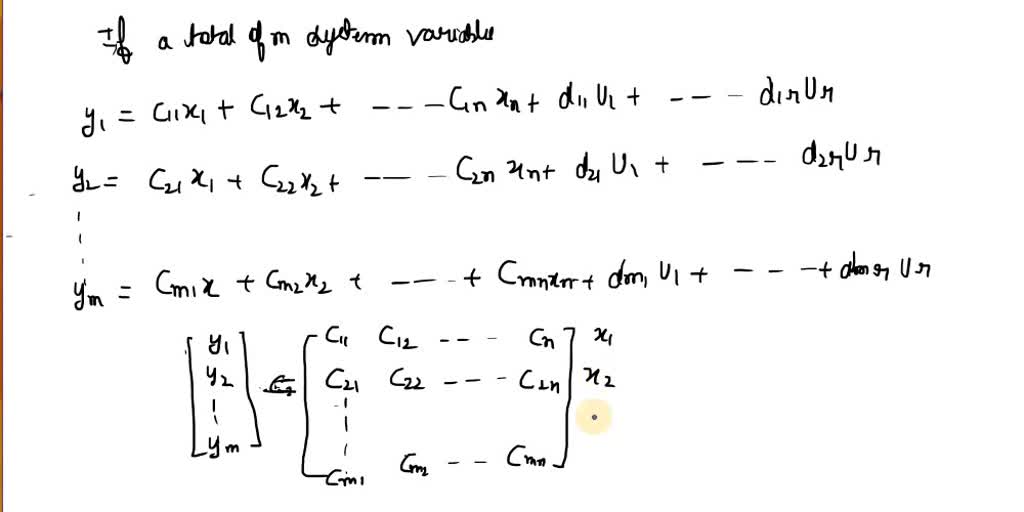 If a total of m system variable
y₁ = C₁₁x₁ + C₁₂x₂ + --- C₁n xn + d₁₁ U₁ + --- d₁r Ur
y₂ = C₂₁ x₁ + C₂₂ x₂ + --- C₂n xn + d₂₁ U₁ + --- d₂r Ur
ym = Cm₁x + Cm₂x₂ + --- + Cmn xn + dm₁ U₁ + --- + dmr Ur
y₁ C₁₁ C₁₂ --- Cn x₁
y₂ = C₂₁ C₂₂ --- C₂n x₂
ym Cm₁ Cm₂ -- Cmn